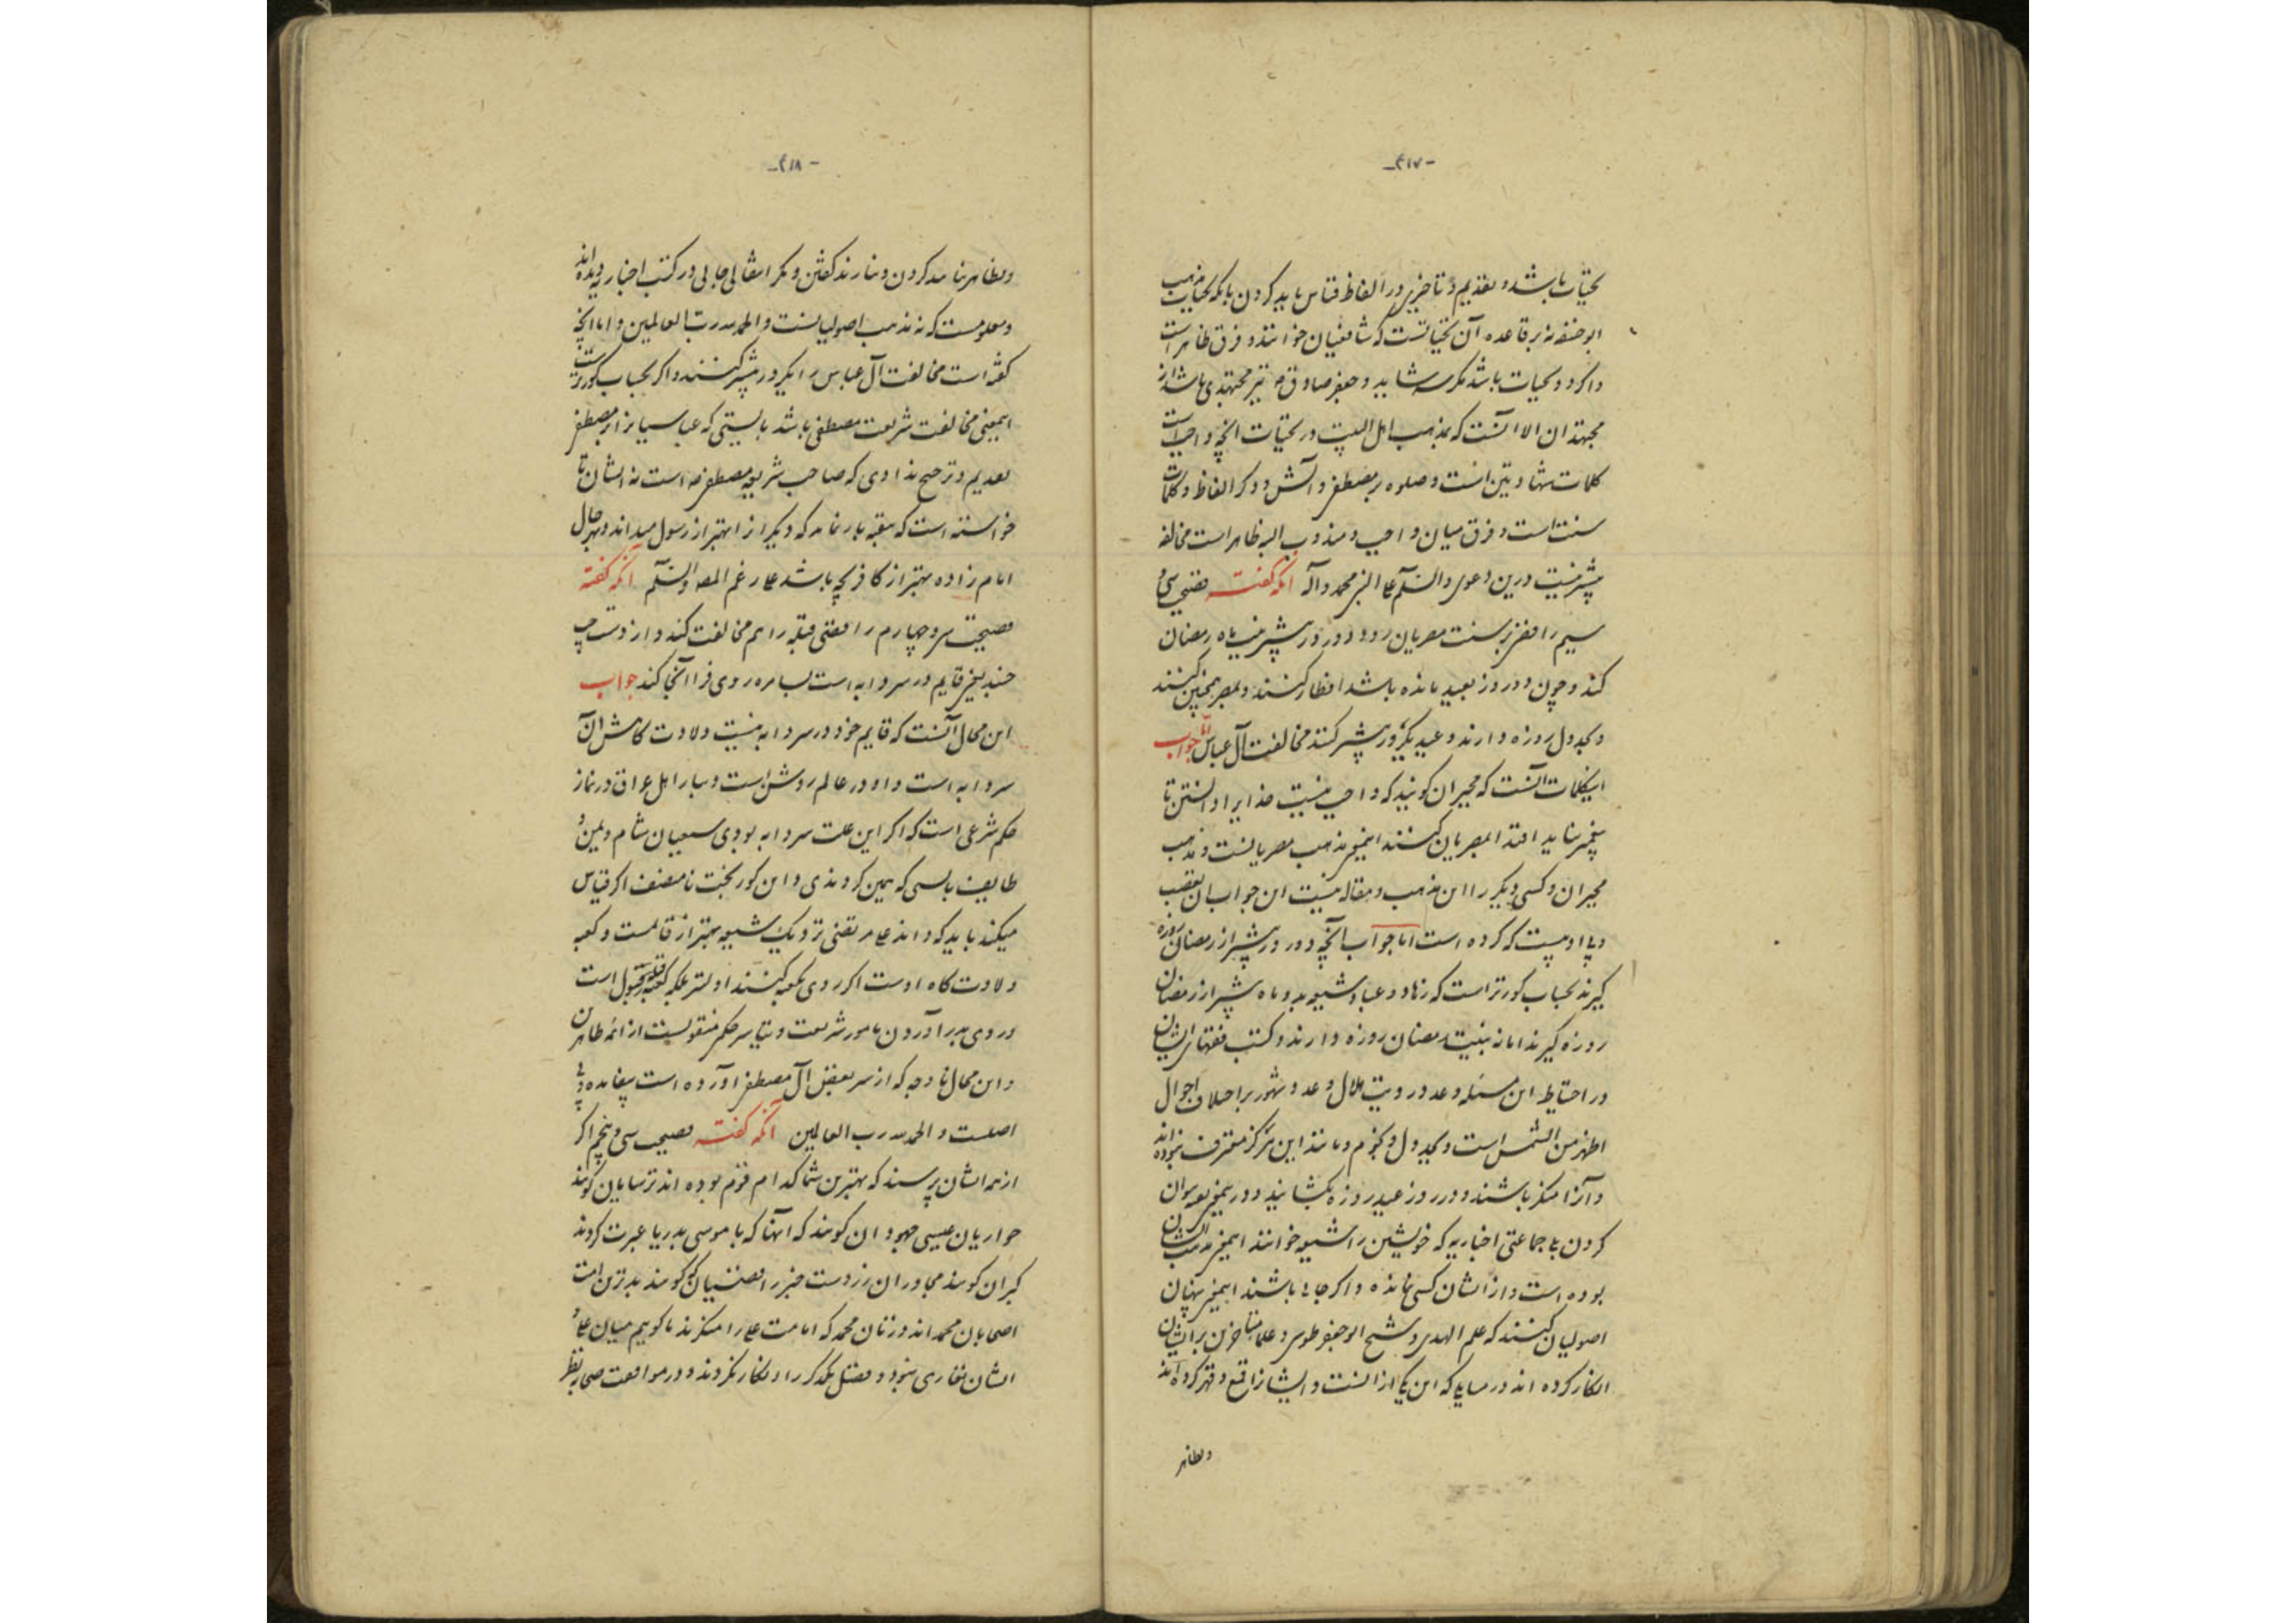 -۴۱۷-
تحیات باشد و تقدیم و تاخیری در الفاظ قیاس باید کردن بآنکه تحیات مذهب
ابو حنیفه نه بر قاعده آن تحیاتست که شافعیان خوانند و فرق ظاهر است
و اگر دو تحیات باشد مگر سه شاید و جعفر صادق نیز مجتهدی باشد از
مجتهدان الا آنست که بمذهب اهل البیت در تحیات آنچه واجب است
کلمات شهادتین است و صلوه بر مصطفی و آلش و دگر الفاظ و کلمات
سنت است و فرق میان واجب و مندوب الیه ظاهر است مخالفه
بیشتر نیست درین دعوی والسلم علی النبی محمد و آله آنکه گفته فضیحت سی و
سیم رافضی بر سنت مصریان رود دو روز پیشتر نیت ماه رمضان
کند و چون دو روز بعید مانده باشد افطار کنند و بمصر همچنین کنند
و بجدول روزه دارند و عید بیکروز پیشتر کنند مخالفت آل عباس اما جواب
این کلمات آنست که مجبران گویند که واجب نیست خدایرا دانستن تا
پیغمبر نیاید اقتدا بمصریان کنند این مذهب مصریانست و مذهب
مجبران و کسی دیگر را این مذهب و مقاله نیست این جواب آن تعصب
و بی ادبیست که کرده است اما جواب آنچه دو روز پیشتر از رمضان روزه
گیرند بحساب کورتر است که زهاد و عباد شیعه بدو ماه پیشتر از رمضان
روزه گیرند اما نه بنیت رمضان روزه دارند و کتب فقهای ایشان
در احتیاط این مسئله و عدد رویت هلال و عدد شهور بر اختلاف احوال
اظهر من الشمس است و بجدول و نجوم و مانند این هرگز معترف نبوده‌اند
و آنرا منکر باشند و در روز عید روزه بگشایند و در
کردن بجماعتی اخباریه که خویشتن را شیعه خوانند این معنی مذهب ایشان
بوده است و از ایشان کسی نمانده و اگر جائی باشند این معنی پنهان
اصولیان کنند که علم الهدی و شیخ ابو جعفر طوسی و علمای متاخرین بر ایشان
انکار کرده اند در مسایلی که این یکی از آنست و ایشانرا قمع و قهر کرده اند
و بظاهر
-۴۱۸-
و بظاهر نیارند کردن و نیارند گفتن و مگر انتقالی جائی در کتب اخباریه دیده اند
و معلومست که نه مذهب اصولیانست والحمد لله رب العالمین و اما آنچه
گفته است مخالفت آل عباس را یکروز پیشتر کنند و اگر بحساب کورتر است
این معنی مخالفت شریعت مصطفی باشد بایستی که عباسیانرا بر مصطفی
تقدیم و ترجیح ندادی که صاحب شریعه مصطفی است نه ایشان تا
خواسته است که بتقیه باز نماید که دیگرانرا بهتر از رسول میداند و بهر حال
امام زاده بهتر از کافر بچه باشد علی رغم والسلم آنکه گفته
فضیحت سی و چهارم رافضی قبله را هم مخالفت کند و از دست چپ
چسبد یعنی قایم در سردابه است بسامره روی فرا آنجا کند جواب
این محال آنست که قایم خود در سردابه نیست ولادت گاهش آن
سردابه است و او در عالم روشن است و تیاسر اهل عراق در نماز
حکم شرعی است که اگر این علت سردابه بودی شیعیان شام و یمن و
طایف بایستی که همین کردندی و این کوربخت نامنصف اگر قیاس
میکند باید که داند علی مرتضی نزدیک شیعه بهتر از قائمست و کعبه
ولادت گاه اوست اگر روی بکعبه کنند اولیتر بلکه کعبه قبله بقول است
و روی بدر آوردن مامور شریعت و تیاسر حکم منقولست از ائمه طاهرین
و این محال نا وجه که از سر بغض آل مصطفی آورده است بیفایده و بی
اصلست والحمد لله رب العالمین آنکه گفته فضیحت سی و پنجم اگر
از ترسایان پرسند که بهترین شما کدام قوم بوده اند ترسایان گویند
حواریان عیسی جهودان گویند که آنها که با موسی بدریا عبرت کردند
گبران گویند مجاوران زردست چون رافضیان گویند بدترین امت
اصحابان محمد اند و زنان محمد که امامت علی را منکرند ما گوییم میان علی و
ایشان نقاری نبود و فضل یکدیگر را انکار نکردند و در موافقت صحابه نظر